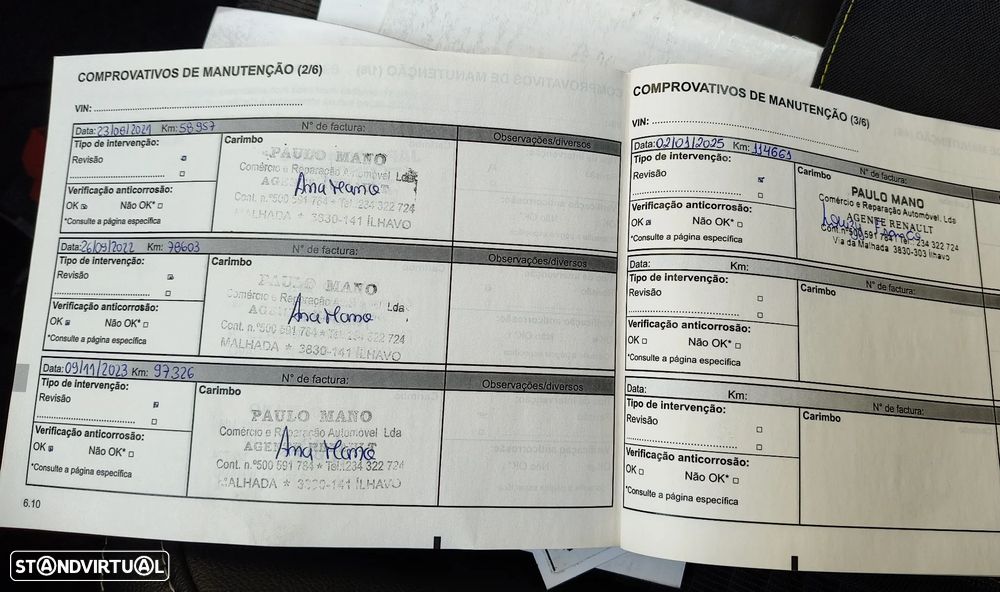 COMPROVATIVOS DE MANUTENÇÃO (2/6)
VIN:
Data: 23/08/2021 Km: 58957 N° de factura:
Tipo de intervenção:
Revisão
Verificação anticorrosão:
OK Não OK*
*Consulte a página específica
Carimbo
PAULO MANO
Comércio e Reparação Automóvel Lda
Ana Mano
Cont. n.º 500 591 784 * Tel. 234 322 724
MALHADA * 3830-141 ÍLHAVO
Observações/diversos
Data: 26/09/2022 Km: 78603 N° de factura:
Tipo de intervenção:
Revisão
Verificação anticorrosão:
OK Não OK*
*Consulte a página específica
Carimbo
PAULO MANO
Comércio e Reparação Automóvel Lda.
Ana Mano
Cont. n.º 500 591 784 * Tel. 234 322 724
MALHADA * 3830-141 ÍLHAVO
Observações/diversos
Data: 09/11/2023 Km: 97326 N° de factura:
Tipo de intervenção:
Revisão
Verificação anticorrosão:
OK Não OK*
*Consulte a página específica
Carimbo
PAULO MANO
Comércio e Reparação Automóvel Lda
AGENTE RENAULT
Ana Mano
Cont. n.º 500 591 784 * Tel. 234 322 724
MALHADA * 3830-141 ÍLHAVO
Observações/diversos
6.10
COMPROVATIVOS DE MANUTENÇÃO (3/6)
VIN:
Data: 02/01/2025 Km: 114661 N° de factura:
Tipo de intervenção:
Revisão
Verificação anticorrosão:
OK Não OK*
*Consulte a página específica
Carimbo
PAULO MANO
Comércio e Reparação Automóvel, Lda
AGENTE RENAULT
Cont. nº 500 591 784 Tel. 234 322 724
Via da Malhada 3830-303 Ílhavo
Data: Km: N° de factura:
Tipo de intervenção:
Revisão
Verificação anticorrosão:
OK Não OK*
*Consulte a página específica
Carimbo
Data: Km: N° de factura:
Tipo de intervenção:
Revisão
Verificação anticorrosão:
OK Não OK*
*Consulte a página específica
Carimbo
STANDVIRTUAL